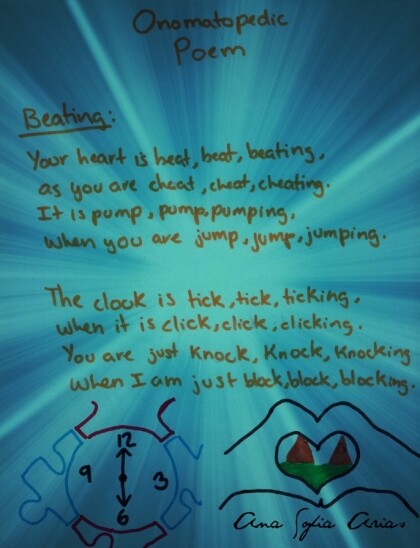 Onomatopedic
Poem
Beating:
Your heart is beat, beat, beating,
as you are cheat, cheat, cheating.
It is pump, pump, pumping,
when you are jump, jump, jumping.
The clock is tick, tick, ticking,
when it is click, click, clicking.
You are just knock, knock, knocking
when I am just block, block, blocking.
12
9 3
6
Ana Sofia Arias